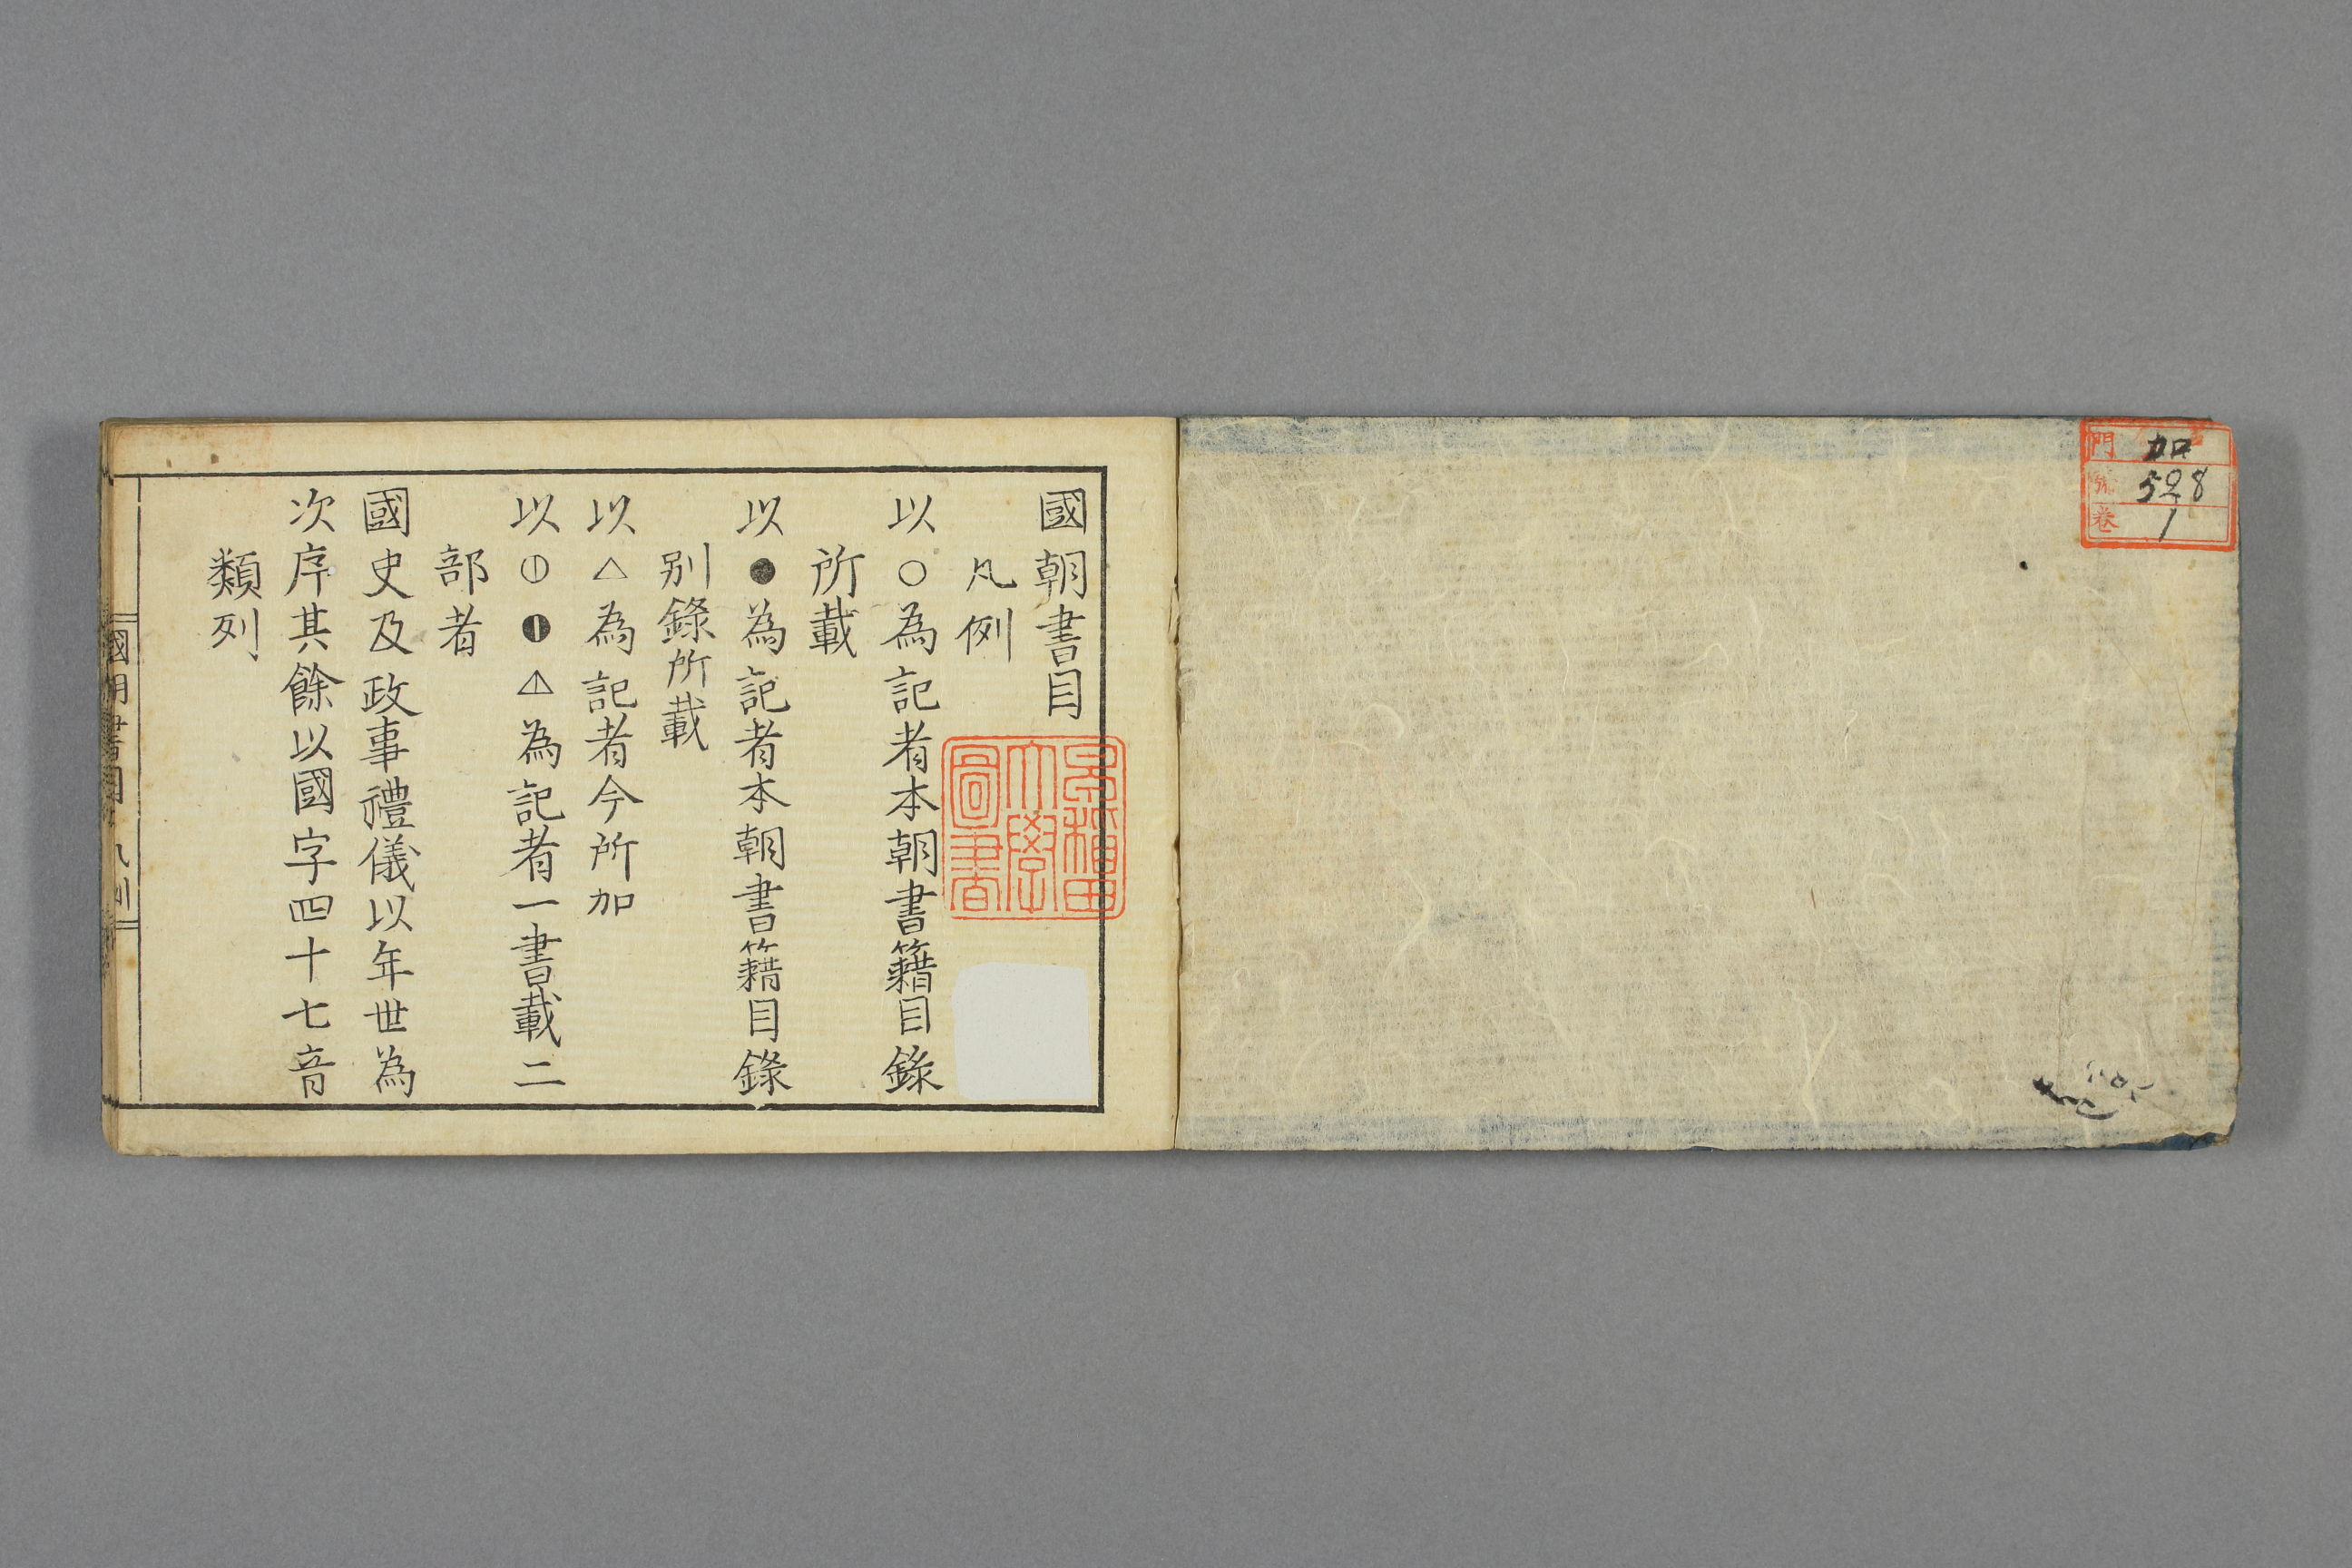 門 加
號 528
卷 1
國朝書目
凡例
以○為記者本朝書籍目錄
所載
以●為記者本朝書籍目錄
別錄所載
以△為記者今所加
以⦶◐◮為記者一書載二
部者
國史及政事禮儀以年世為
次序其餘以國字四十七音
類列
早稲田
大學
圖書
國朝書目 凡例